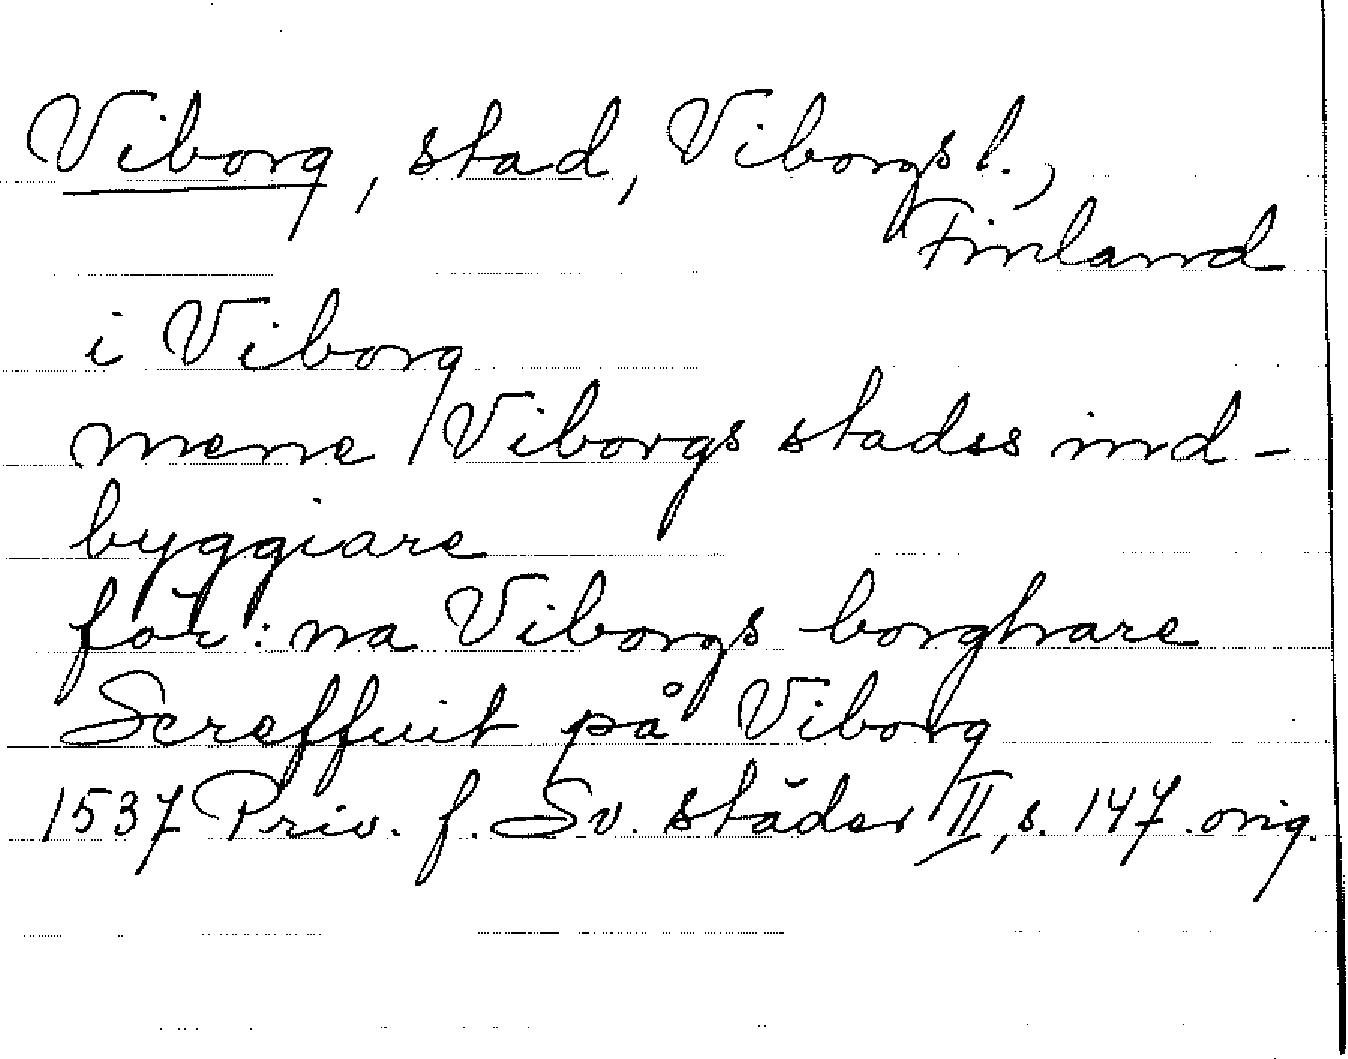 Viborg, stad, Viborgs l.,
Finland
i Viborg
mene Viborgs stades ind-
byggiare
för:na Viborgs borghare
Screffuit på Viborg
1537 Priv. f. Sv. städer II, s. 147. orig.